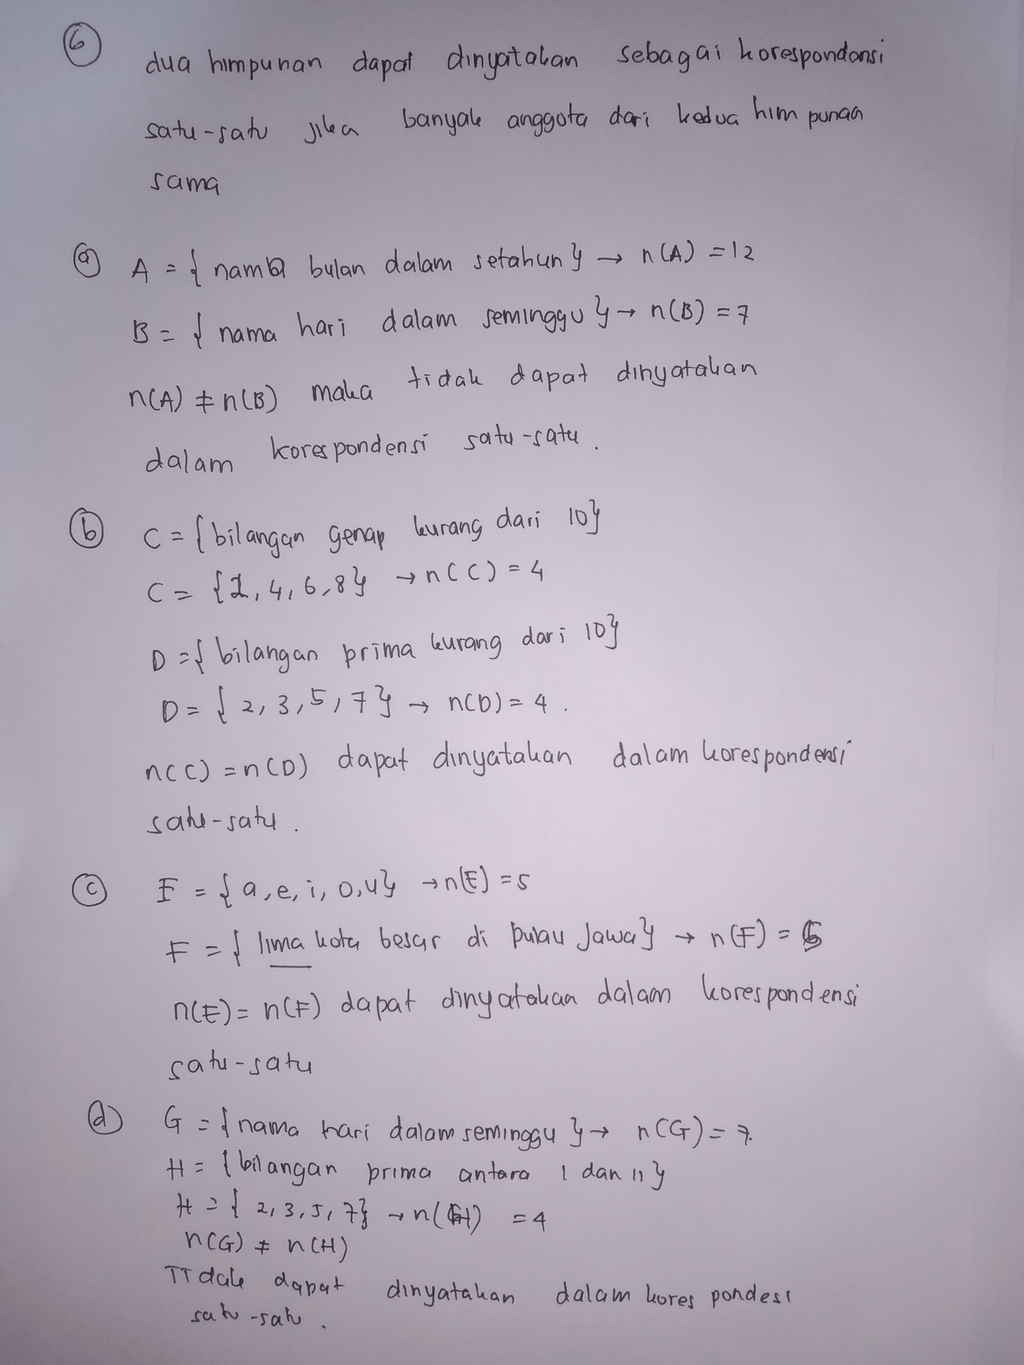 6
dua himpunan dapat dinyatakan sebagai korespondansi
satu-satu jika banyak anggota dari kedua himpunan
sama
a A = { nama bulan dalam setahun } → n(A) = 12
B = { nama hari dalam seminggu } → n(B) = 7
n(A) ≠ n(B) maka tidak dapat dinyatakan
dalam korespondensi satu-satu.
b C = { bilangan genap kurang dari 10}
C = {2, 4, 6, 8} → n(C) = 4
D = { bilangan prima kurang dari 10}
D = { 2, 3, 5, 7 } → n(D) = 4.
n(C) = n(D) dapat dinyatakan dalam korespondensi
satu-satu.
c E = { a, e, i, o, u} → n(E) = 5
F = { lima kota besar di pulau Jawa} → n(F) = 5
n(E) = n(F) dapat dinyatakan dalam korespondensi
satu-satu
d G = { nama hari dalam seminggu } → n(G) = 7.
H = { bilangan prima antara 1 dan 11 }
H = { 2, 3, 5, 7} → n(H) = 4
n(G) ≠ n(H)
Tidak dapat dinyatakan dalam korespondesi
satu-satu.